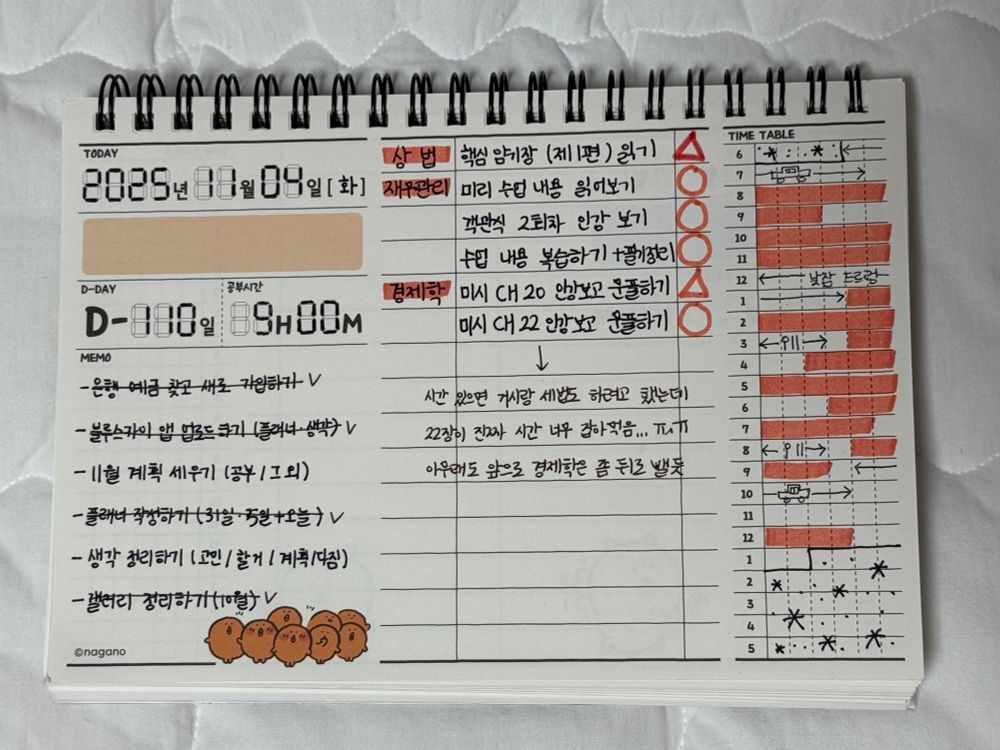 TODAY
2025년 11월 04일 [화]
D-DAY
D-110일
공부시간
9H00M
MEMO
- 은행 예금 찾고 새로 가입하기 ✓
- 블루스카이 앱 업로드하기 (플래너·생각) ✓
- 11월 계획 세우기 (공부/그 외)
- 플래너 작성하기 (31일·5일+오늘) ✓
- 생각 정리하기 (고민/할거/계획/다짐)
- 갤러리 정리하기 (10월) ✓
©nagano
상법 핵심 암기장 (제1편) 읽기 △
재무관리 미리 수업 내용 읽어보기 ○
객관식 2회차 인강 보기 ○
수업 내용 복습하기 + 필기정리 ○
경제학 미시 CH 20 인강보고 문풀하기 △
미시 CH 22 인강보고 문풀하기 ○
↓
시간 있으면 거시랑 세법도 하려고 했는데
22장이 진짜 시간 너무 잡아먹음... ㅠ.ㅠ
아무래도 앞으로 경제학은 좀 뒤로 뺄듯
TIME TABLE
6
7
8
9
10
11
12 낮잠 드르렁
1
2
3 밥
4
5
6
7
8 밥
9
10
11
12
1
2
3
4
5